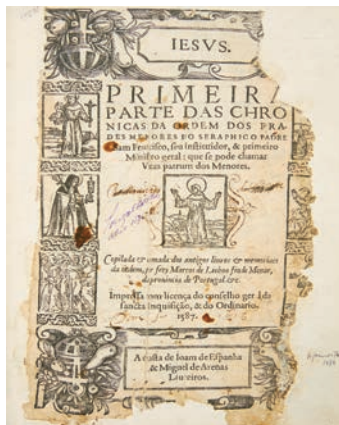 IESVS.
PRIMEIRA
PARTE DAS CHRO
NICAS DA ORDEM DOS FRA-
DES MENORES DO SERAPHICO PADRE
Sam Francisco, seu instituidor, & primeiro
Ministro geral: que se pode chamar
Vitas patrum dos Menores.
Copilada & tomada dos antigos livros & memoriaes
da ordem, por frey Marcos de Lisboa frade Menor,
da provincia de Portugal. &c.
Impressa com licença do conselho geral da
sancta inquisição, & do Ordinario.
1587.
A custa de Ioam de Espanha
& Miguel de Arenas
Livreiros.